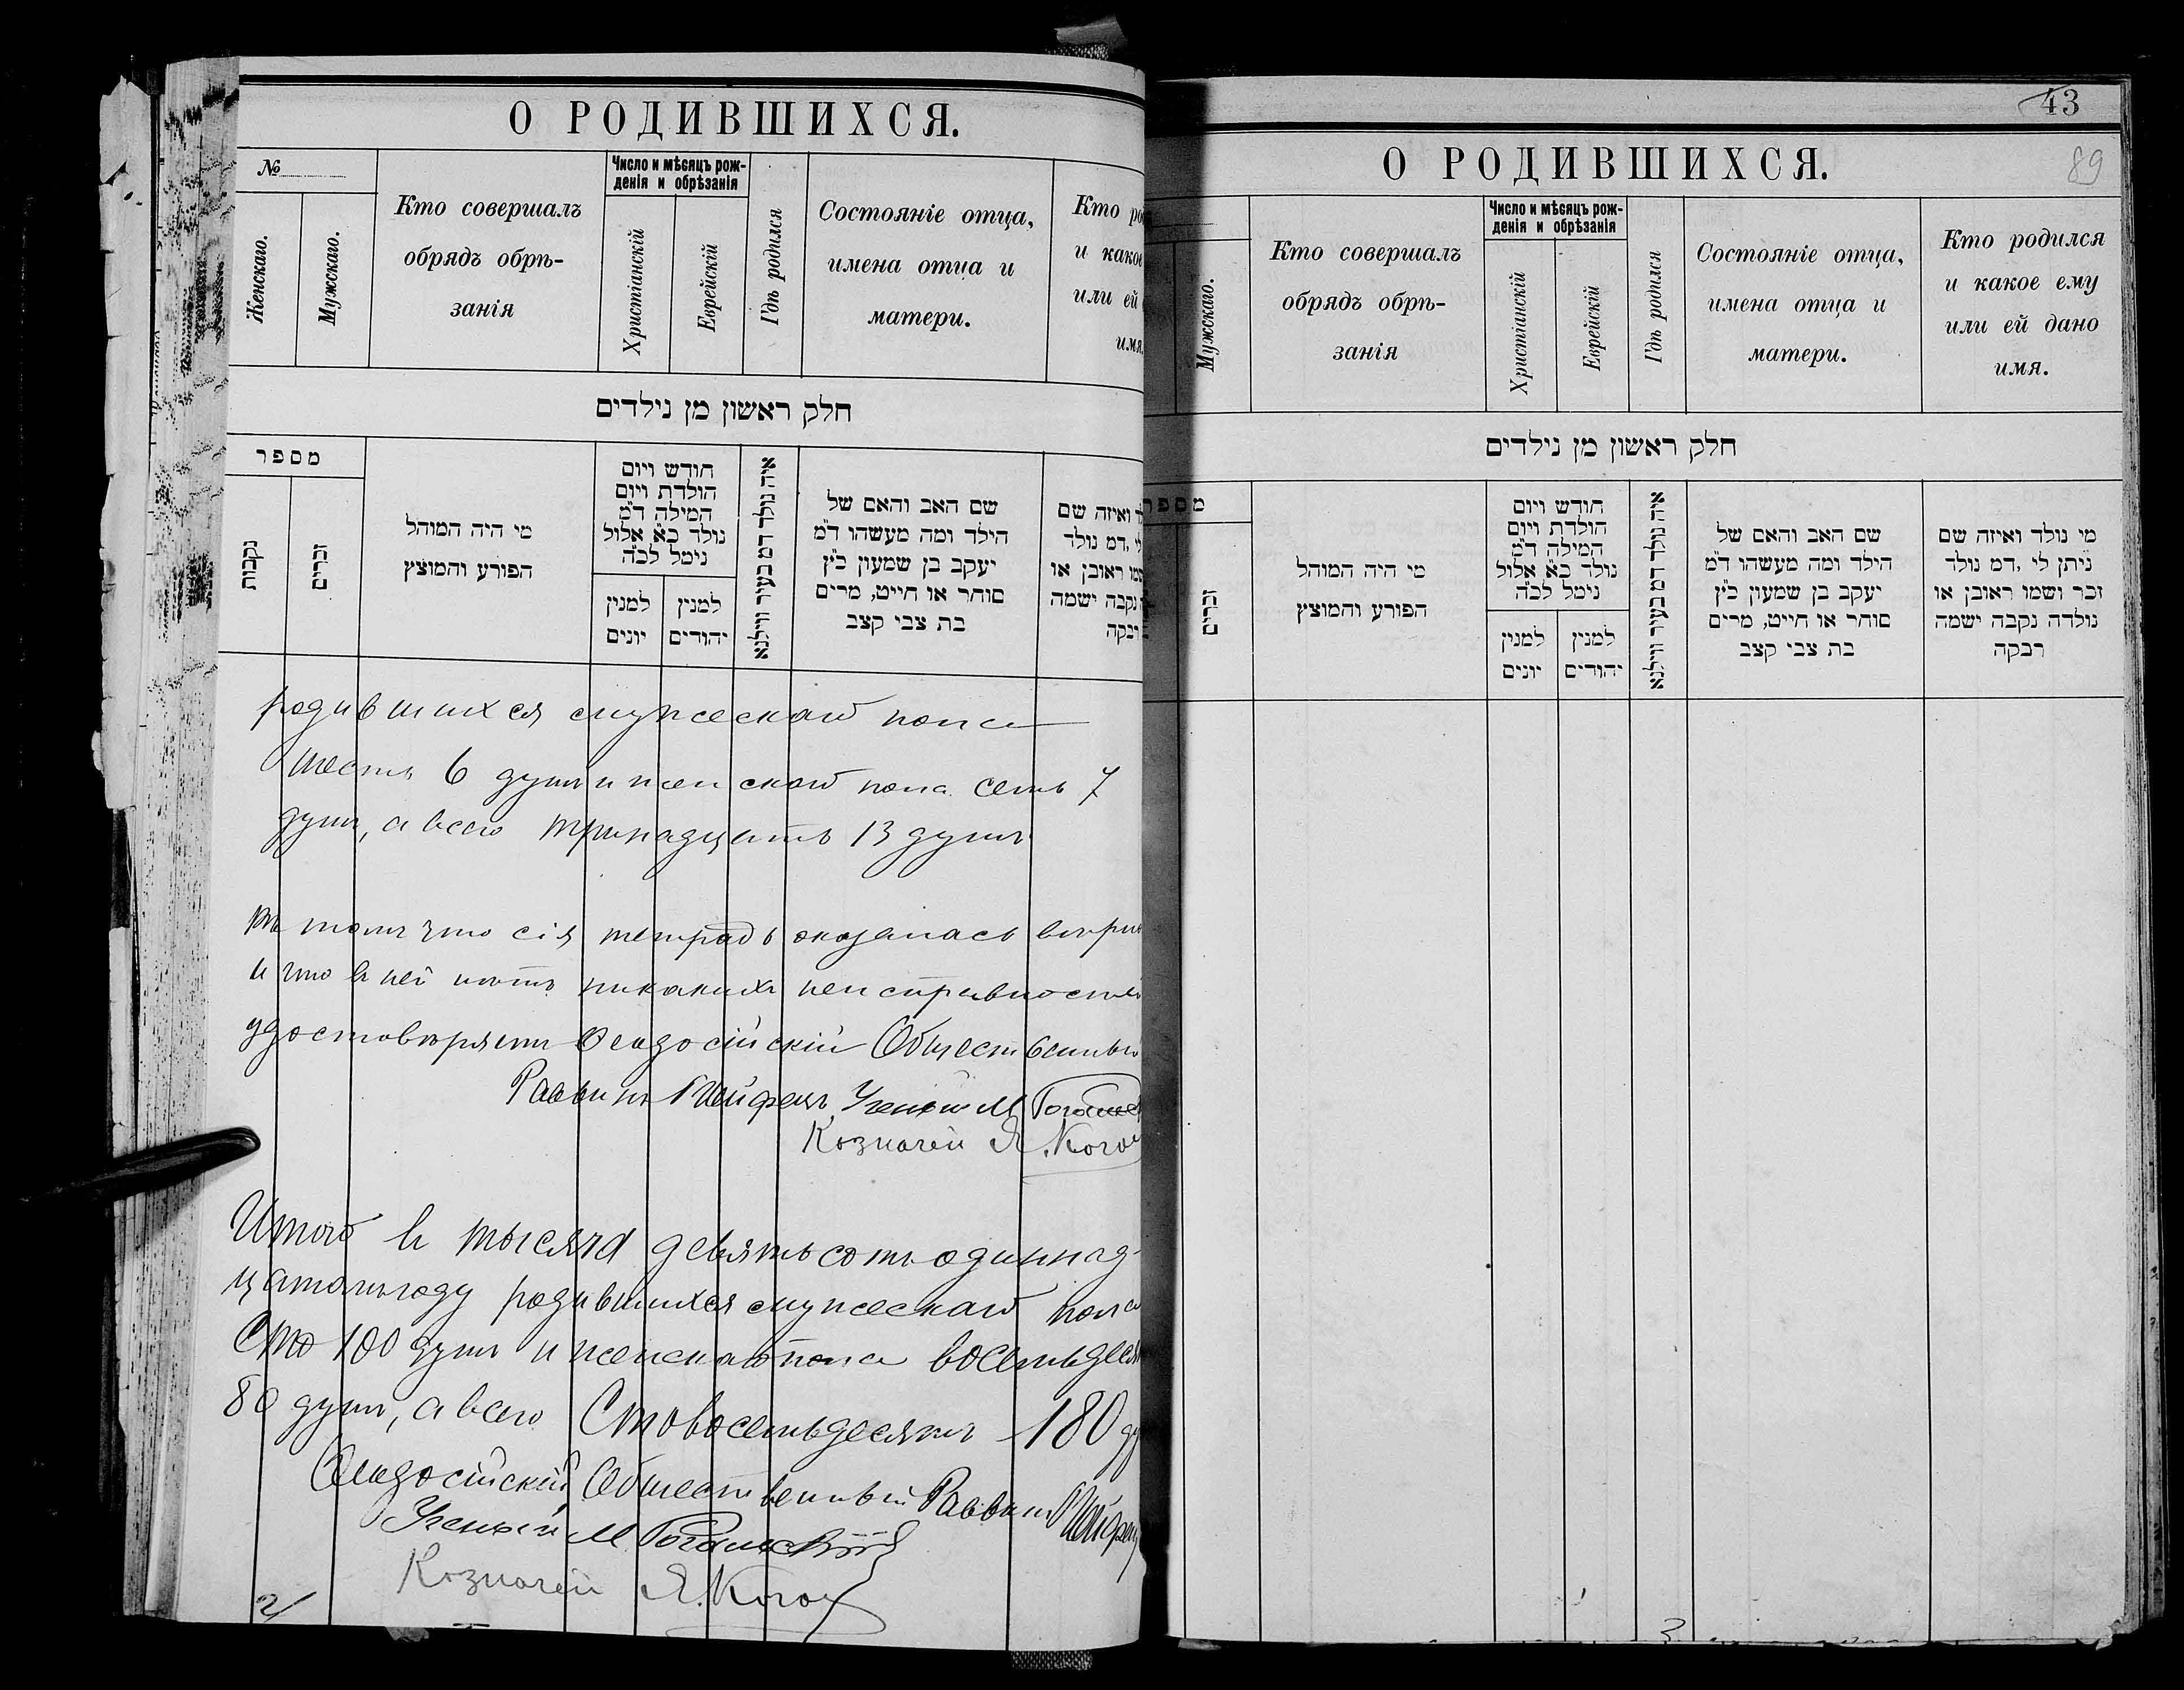 О РОДИВШИХСЯ.
№
Женскаго.
Мужскаго.
Кто совершалъ
обрядъ обрѣ-
занія
Число и мѣсяцъ рож-
денія и обрѣзанія
Христіанскій
Еврейскій
Гдѣ родился
Состояніе отца,
имена отца и
матери.
Кто ро
и какое
или ей
имя.
חלק ראשון מן נילדים
מספר
נקבות
זכרים
מי היה המוהל
הפורע והמוצץ
חודש ויום
הולדת ויום
המילה ד״מ
נולד כ״א אלול
נימל לכ״ה
למנין
יונים
למנין
יהודים
איה נולד דמ בעיר ווילנא
שם האב והאם של
הילד ומה מעשהו ד״מ
יעקב בן שמעון כ״ץ
סוחר או חייט, מרים
בת צבי קצב
ואיזה שם
לי ,דמ נולד
ראובן או
נקבה ישמה
רבקה
родившихся мужескаго пола
шесть 6 душъ и женскаго пола семь 7
душъ, а всего тринадцать 13 душъ
въ томъ что сія тетрадь оказалась
и что въ ней нѣтъ никакихъ неисправностей
удостовѣряетъ Ѳеодосійскій Общественный
Раввинъ Ученый М
Козначей Я.
Итого въ тысяча девятьсотъ одиннад-
цатомъ году родившихся мужескаго пола
Сто 100 душъ и женскаго пола восемьдесят
80 душъ, а всего Сто восемьдесятъ 180 ду
Ѳеодосійскій Общественный Раввинъ
Ученый М
Козначей Я.
43
О РОДИВШИХСЯ.
89
Мужскаго.
Кто совершалъ
обрядъ обрѣ-
занія
Число и мѣсяцъ рож-
денія и обрѣзанія
Христіанскій
Еврейскій
Гдѣ родился
Состояніе отца,
имена отца и
матери.
Кто родился
и какое ему
или ей дано
имя.
חלק ראשון מן נילדים
מספר
זכרים
מי היה המוהל
הפורע והמוצץ
חודש ויום
הולדת ויום
המילה ד״מ
נולד כ״א אלול
נימל לכ״ה
למנין
יונים
למנין
יהודים
איה נולד דמ בעיר ווילנא
שם האב והאם של
הילד ומה מעשהו ד״מ
יעקב בן שמעון כ״ץ
סוחר או חייט, מרים
בת צבי קצב
מי נולד ואיזה שם
ניתן לי ,דמ נולד
זכר ושמו ראובן או
נולדה נקבה ישמה
רבקה